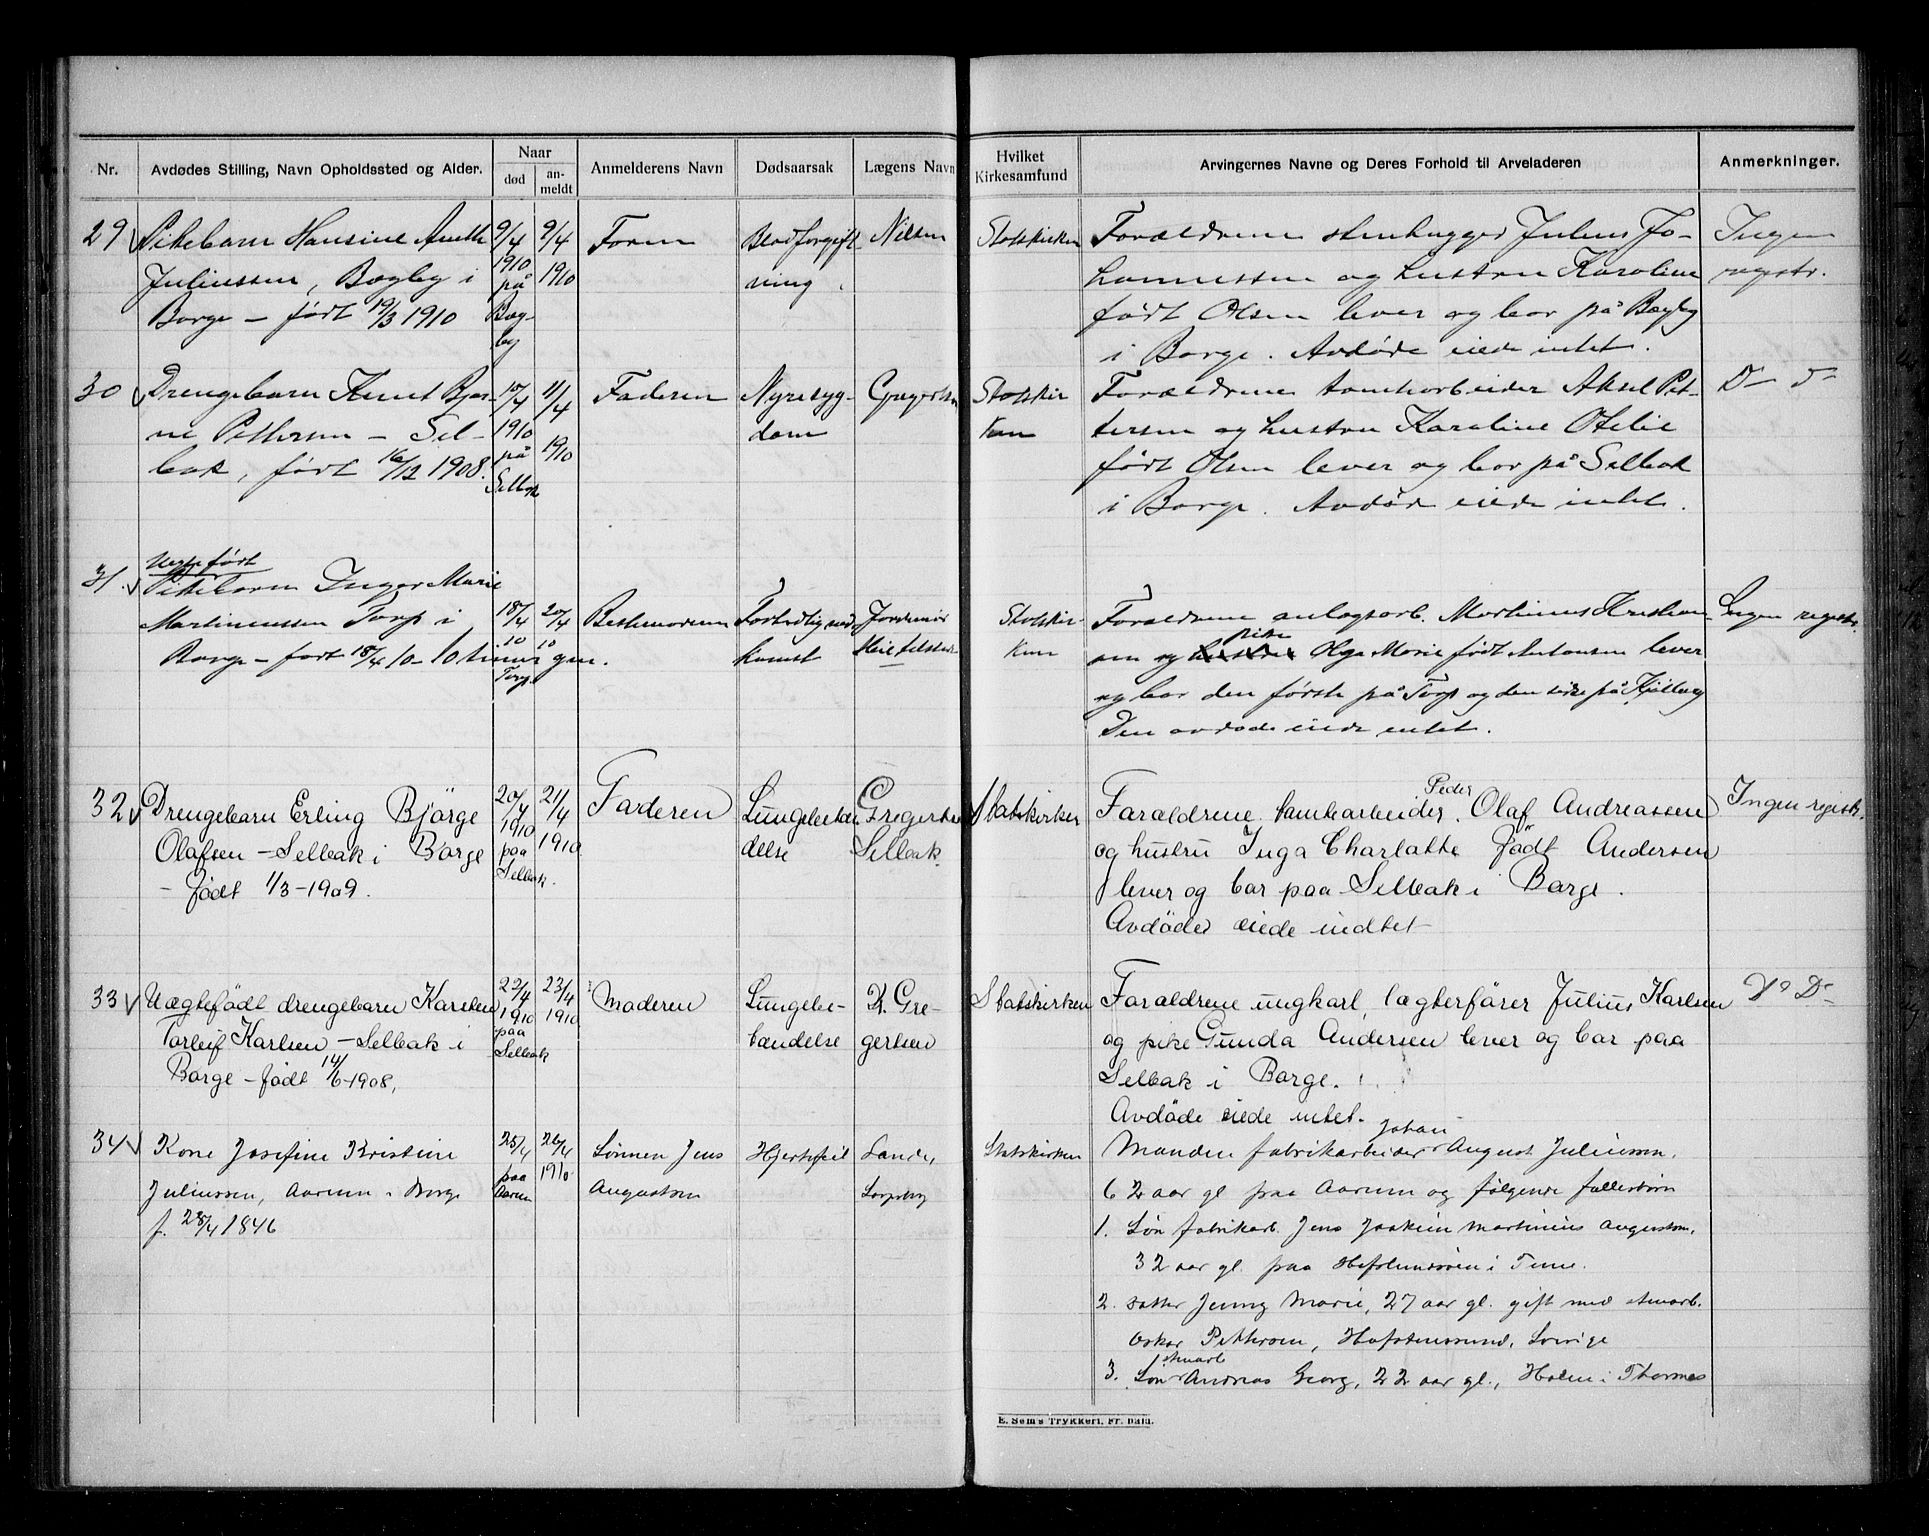 Nr.
Avdødes Stilling, Navn Opholdssted og Alder.
Naar
død
an-
meldt
Anmelderens Navn
Dødsaarsak
Lægens Navn
Hvilket
Kirkesamfund
Arvingernes Navne og Deres Forhold til Arveladeren
Anmerkninger.
29
Pikebarn Hansine Aneth
Juliussen, Begby i
Borge – født 19/3 1910
9/4
1910
på
Beg-
by
9/4
1910
Faren
Blodforgift-
ning
Nilsen
Statskirken
Forældrene stenhugger Julius Jo-
hannessen og hustru Karoline
født Olsen lever og bor på Begby
i Borge. Avdøde eiede intet.
Ingen
registr.
30
Drengebarn Knut Bjar-
ne Pettersen – Sel-
bak, født 16/12 1908.
10/4
1910
på
Selbak
11/4
1910
Faderen
Nyresyg-
dom
Gregertsen
Statskir
ken
Forældrene tomtearbeider Aksel Pet-
tersen og hustru Karoline Otelie
født Olsen lever og bor på Selbak
i Borge. Avdøde eiede intet.
Do Do
31.
Uegte født
Pikebarn Inger Marie
Martinussen Torp i
Borge – født 18/4 10 – 10 timer gm.
18/4
10
Torp
20/4
10
Bestemoderen
Fortidlig ned-
komst
Jordmor
Statskir-
ken
Forældrene anlegsarb. Martinus Kristian-
sen og pike Olga Marie født Antonsen lever
og bor den første på Torp og den siste på Kjølberg
Den avdøde eiede intet.
Ingen registr.
32
Drengebarn Erling Bjørge
Olafsen – Selbak i Borge
– født 1/3 – 1909.
20/4
1910
paa
Selbak.
21/4
1910
Faderen
Lungebetæn
delse
Gregertsen
Selbak
Statskirken
Peder
Forældrene tomtearbeider Olaf Andreassen
og hustru Inga Charlotte født Andersen
lever og bor paa Selbak i Borge.
Avdøde eiede indtet –
Ingen registr.
33
Uægtefødt drengebarn Karsten
Torleif Karlsen – Selbak i
Borge – født 14/6 – 1908,
22/4
1910
paa
Selbak
23/4
1910
Moderen
Lungebe-
tændelse
K. Gre-
gertsen
Statskirken
Forældrene ungkarl, lægterfører Julius Karlsen
og pike Gunda Andersen lever og bor paa
Selbak i Borge.
Avdøde eiede intet.
Do Do
34
Kone Josefine Kristine
Juliussen, Aarum i Borge
f. 28/4 1846
25/4
paa
Aarum
26/4
1910
Sønnen Jens
Augustsen
Hjertefeil
Lande,
Sarpsborg
Statskirken
Johan
Manden fabrikarbeider August Juliussen,
62 aar gl paa Aarum og følgende fællesbørn
1. Søn fabrikarb. Jens Joakim Martinius Augustsen,
32 aar gl. paa Hafslundsøen i Tune.
2. Datter Jenny Marie, 27 aar gl. gift med stenarb.
Oskar Pettersen, Hafstenssund, Sverige
stenarb
3. Søn Andreas Georg, 22 aar gl., Holen i Thorsnes
E. Sem's Trykkeri, Fr. hald.